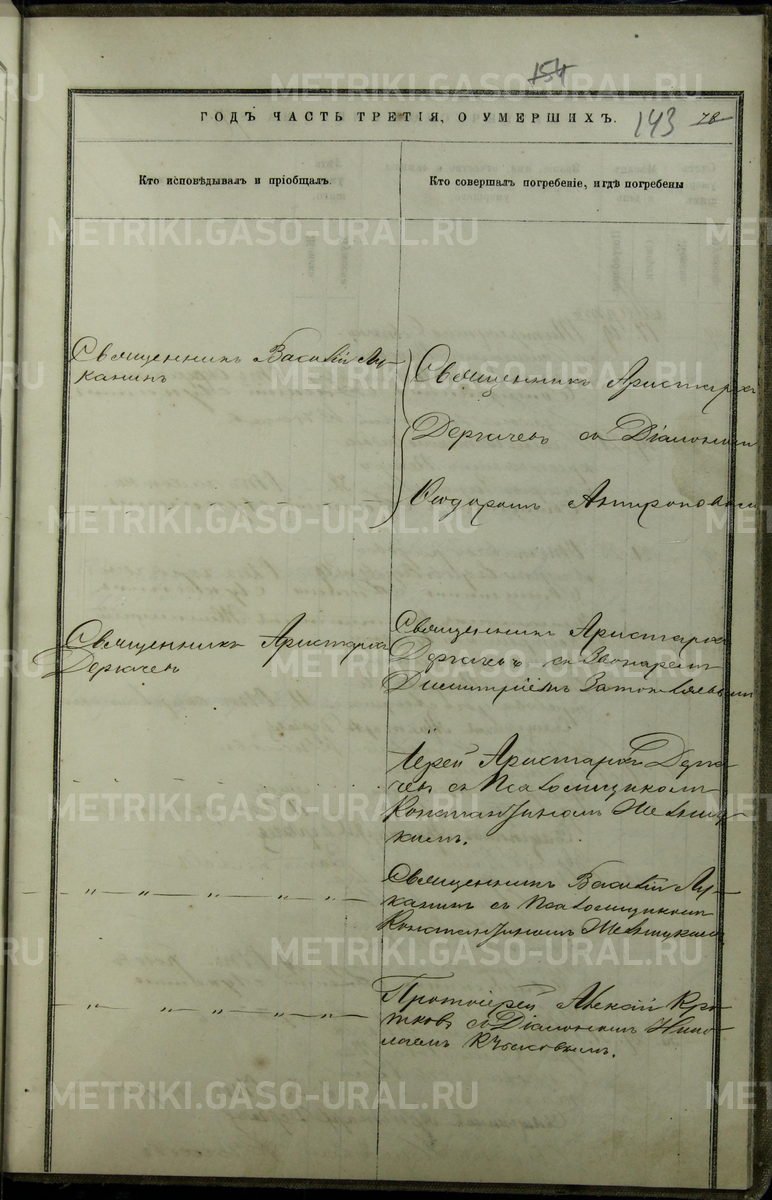 154
ГОДЪ ЧАСТЬ ТРЕТІЯ, О УМЕРШИХЪ.
143
78
Кто исповѣдывалъ и пріобщалъ.
Кто совершалъ погребеніе, и гдѣ погребены
Священникъ Василій Лу-
канинъ
Священникъ Аристархъ
Дергачевъ съ Діакономъ
Ѳеодоромъ
Священникъ Аристархъ
Дергачевъ
Священникъ Аристархъ
Дергачевъ съ Звонаремъ
Димитріемъ
Іерей Аристархъ Дерга-
чевъ съ Псаломщикомъ
Константиномъ
Священникъ Василій Лу-
канинъ съ Псаломщикомъ
Константиномъ
Протоіерей Алексій
съ Діакономъ Нико-
лаемъ
METRIKI.GASO-URAL.RU